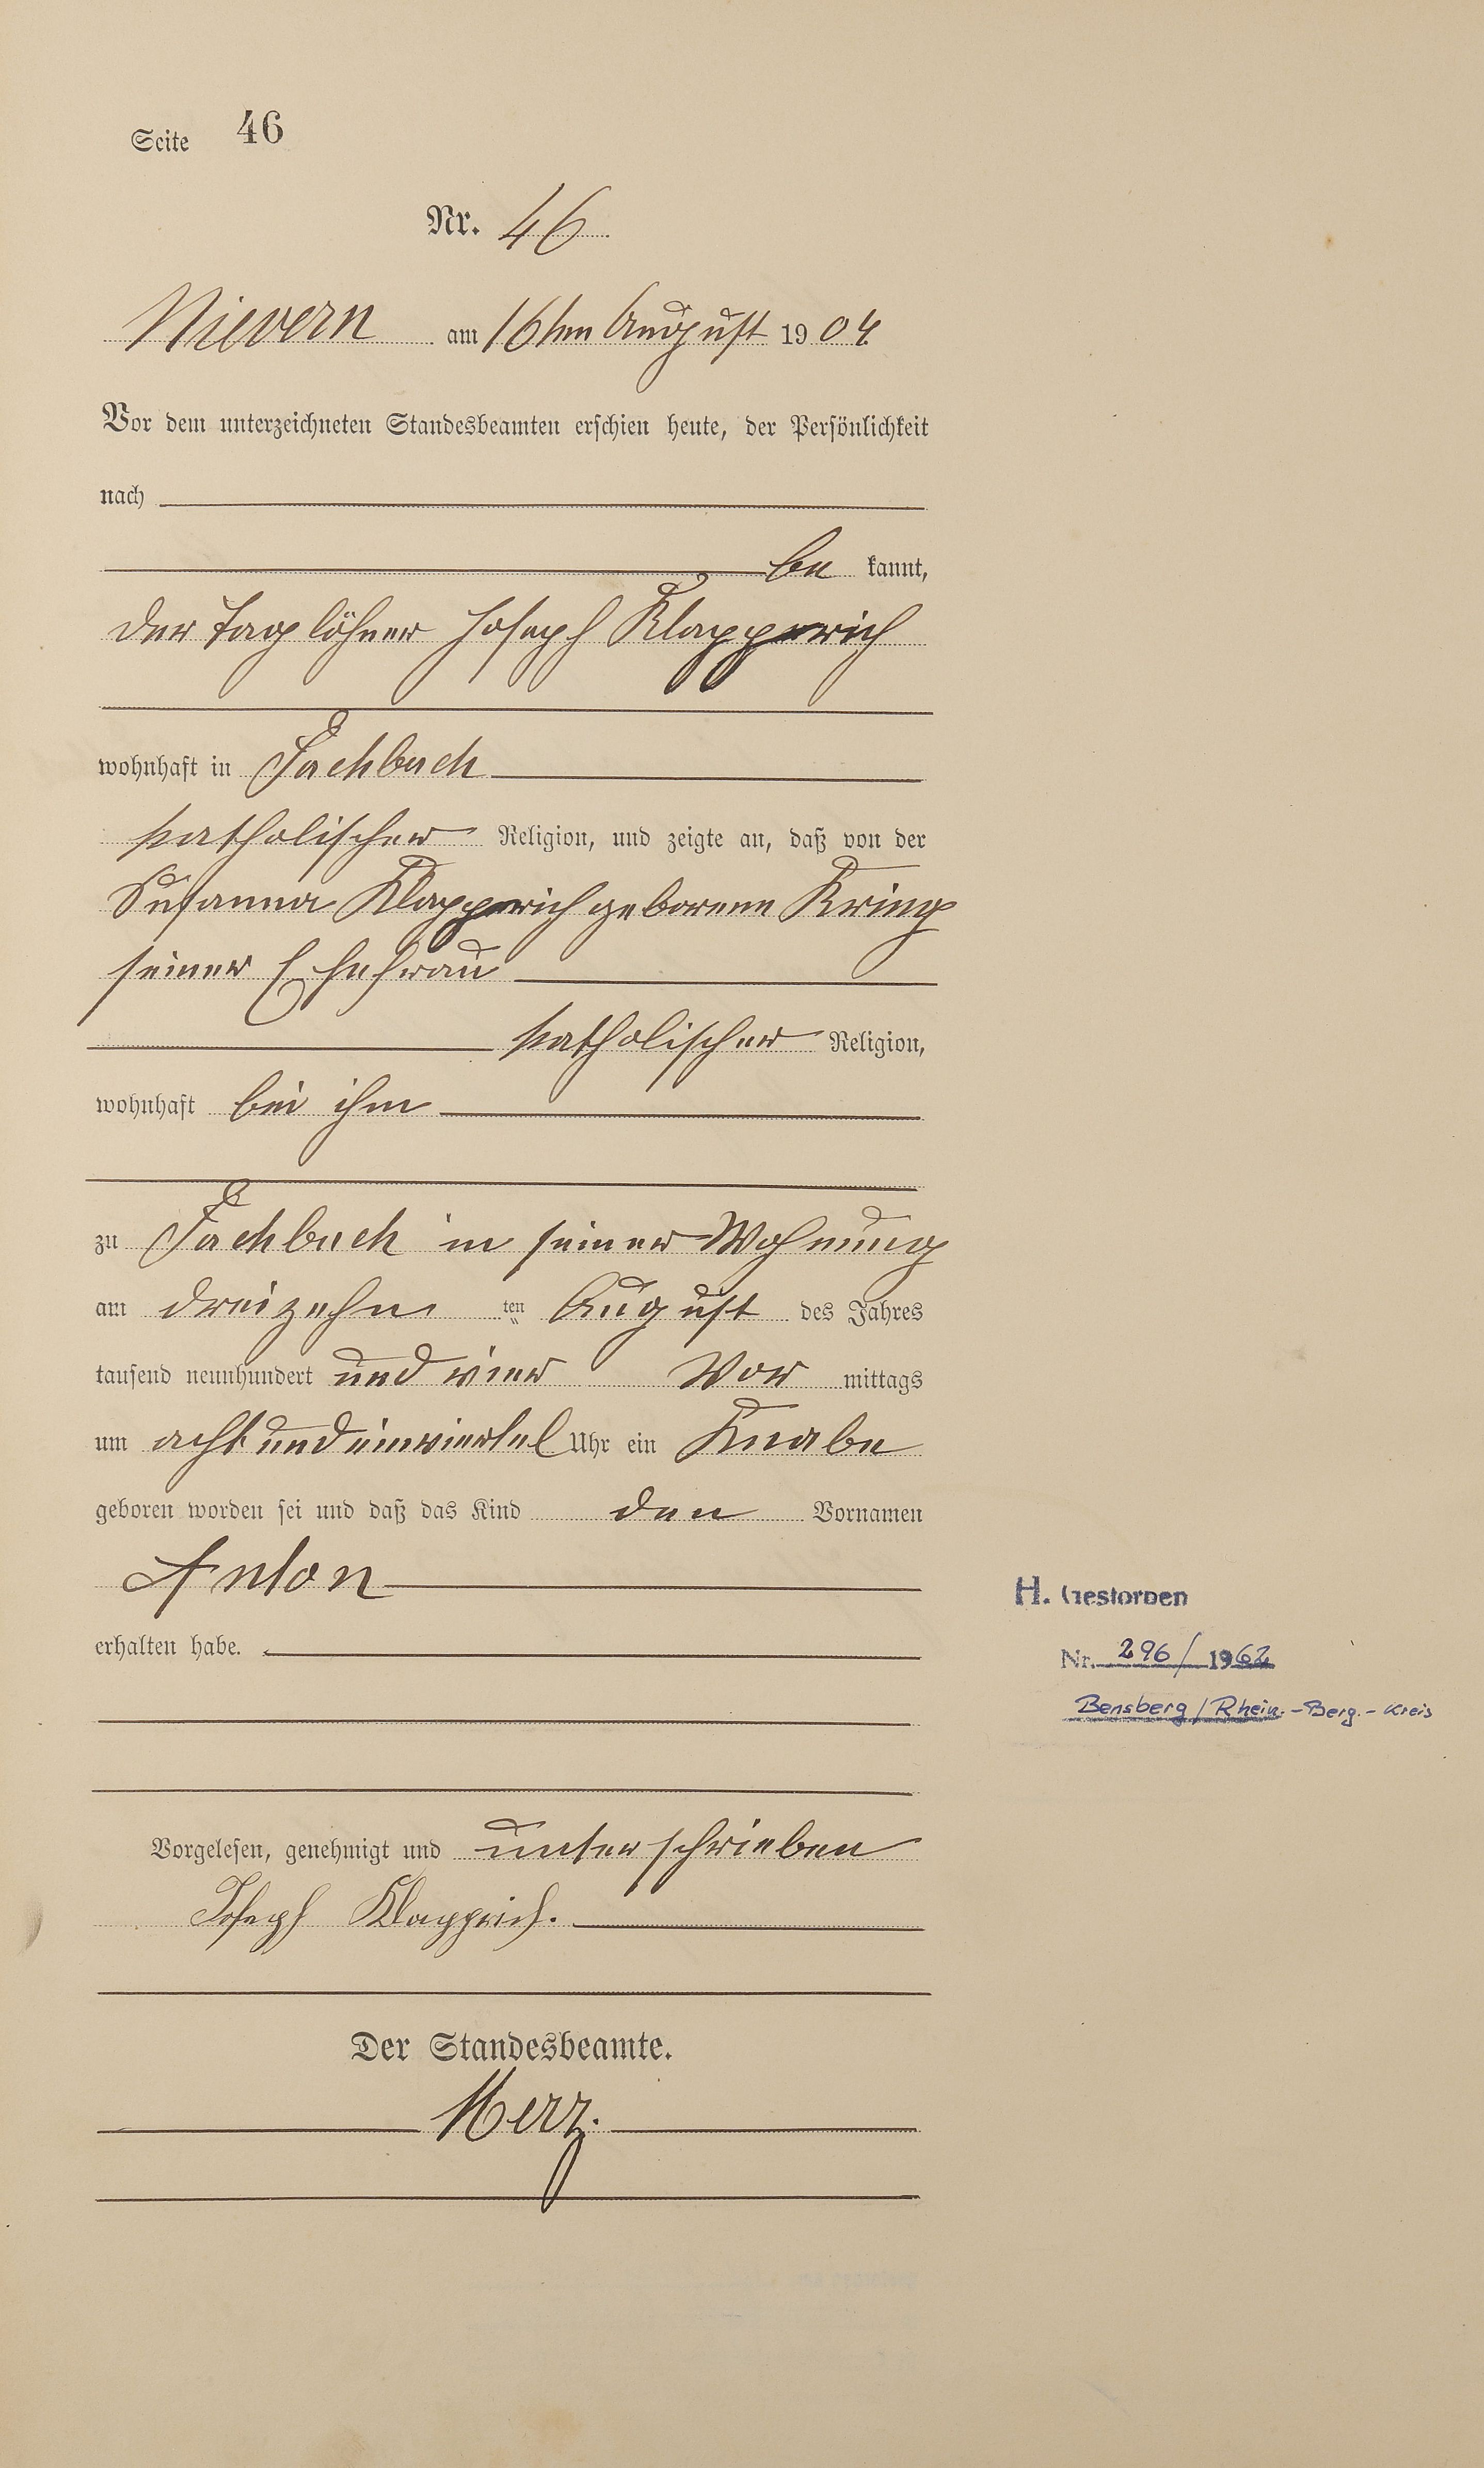 Seite 46
Nr. 46
Nievern am 16ten August 1904.
Vor dem unterzeichneten Standesbeamten erschien heute, der Persönlichkeit
nach
be kannt,
der Taglöhner Joseph Klapprich
wohnhaft in Fachbach
katholischer Religion, und zeigte an, daß von der
Susanna Klapprich geborene Kring
seiner Ehefrau
katholischer Religion,
wohnhaft bei ihm
zu Fachbach in seiner Wohnung
am dreizehn ten August des Jahres
tausend neunhundert und vier Vor mittags
um acht und einviertel Uhr ein Knabe
geboren worden sei und daß das Kind den Vornamen
Anton
erhalten habe.
H. Gestorben
Nr. 296/1962
Bensberg/Rhein.-Berg.-Kreis
Vorgelesen, genehmigt und unterschrieben
Joseph Klapprich.
Der Standesbeamte.
Merz.